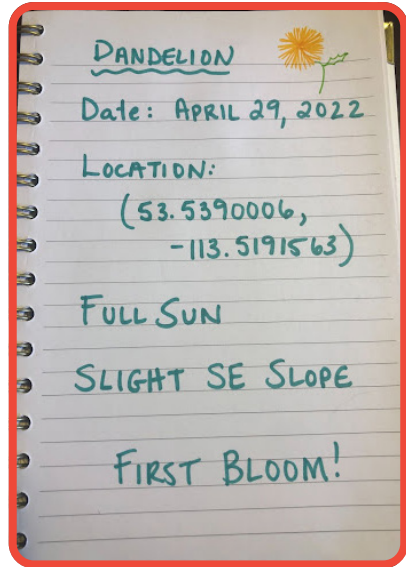 DANDELION
Date: APRIL 29, 2022
LOCATION:
(53.5390006,
-113.5191563)
FULL SUN
SLIGHT SE SLOPE
FIRST BLOOM!